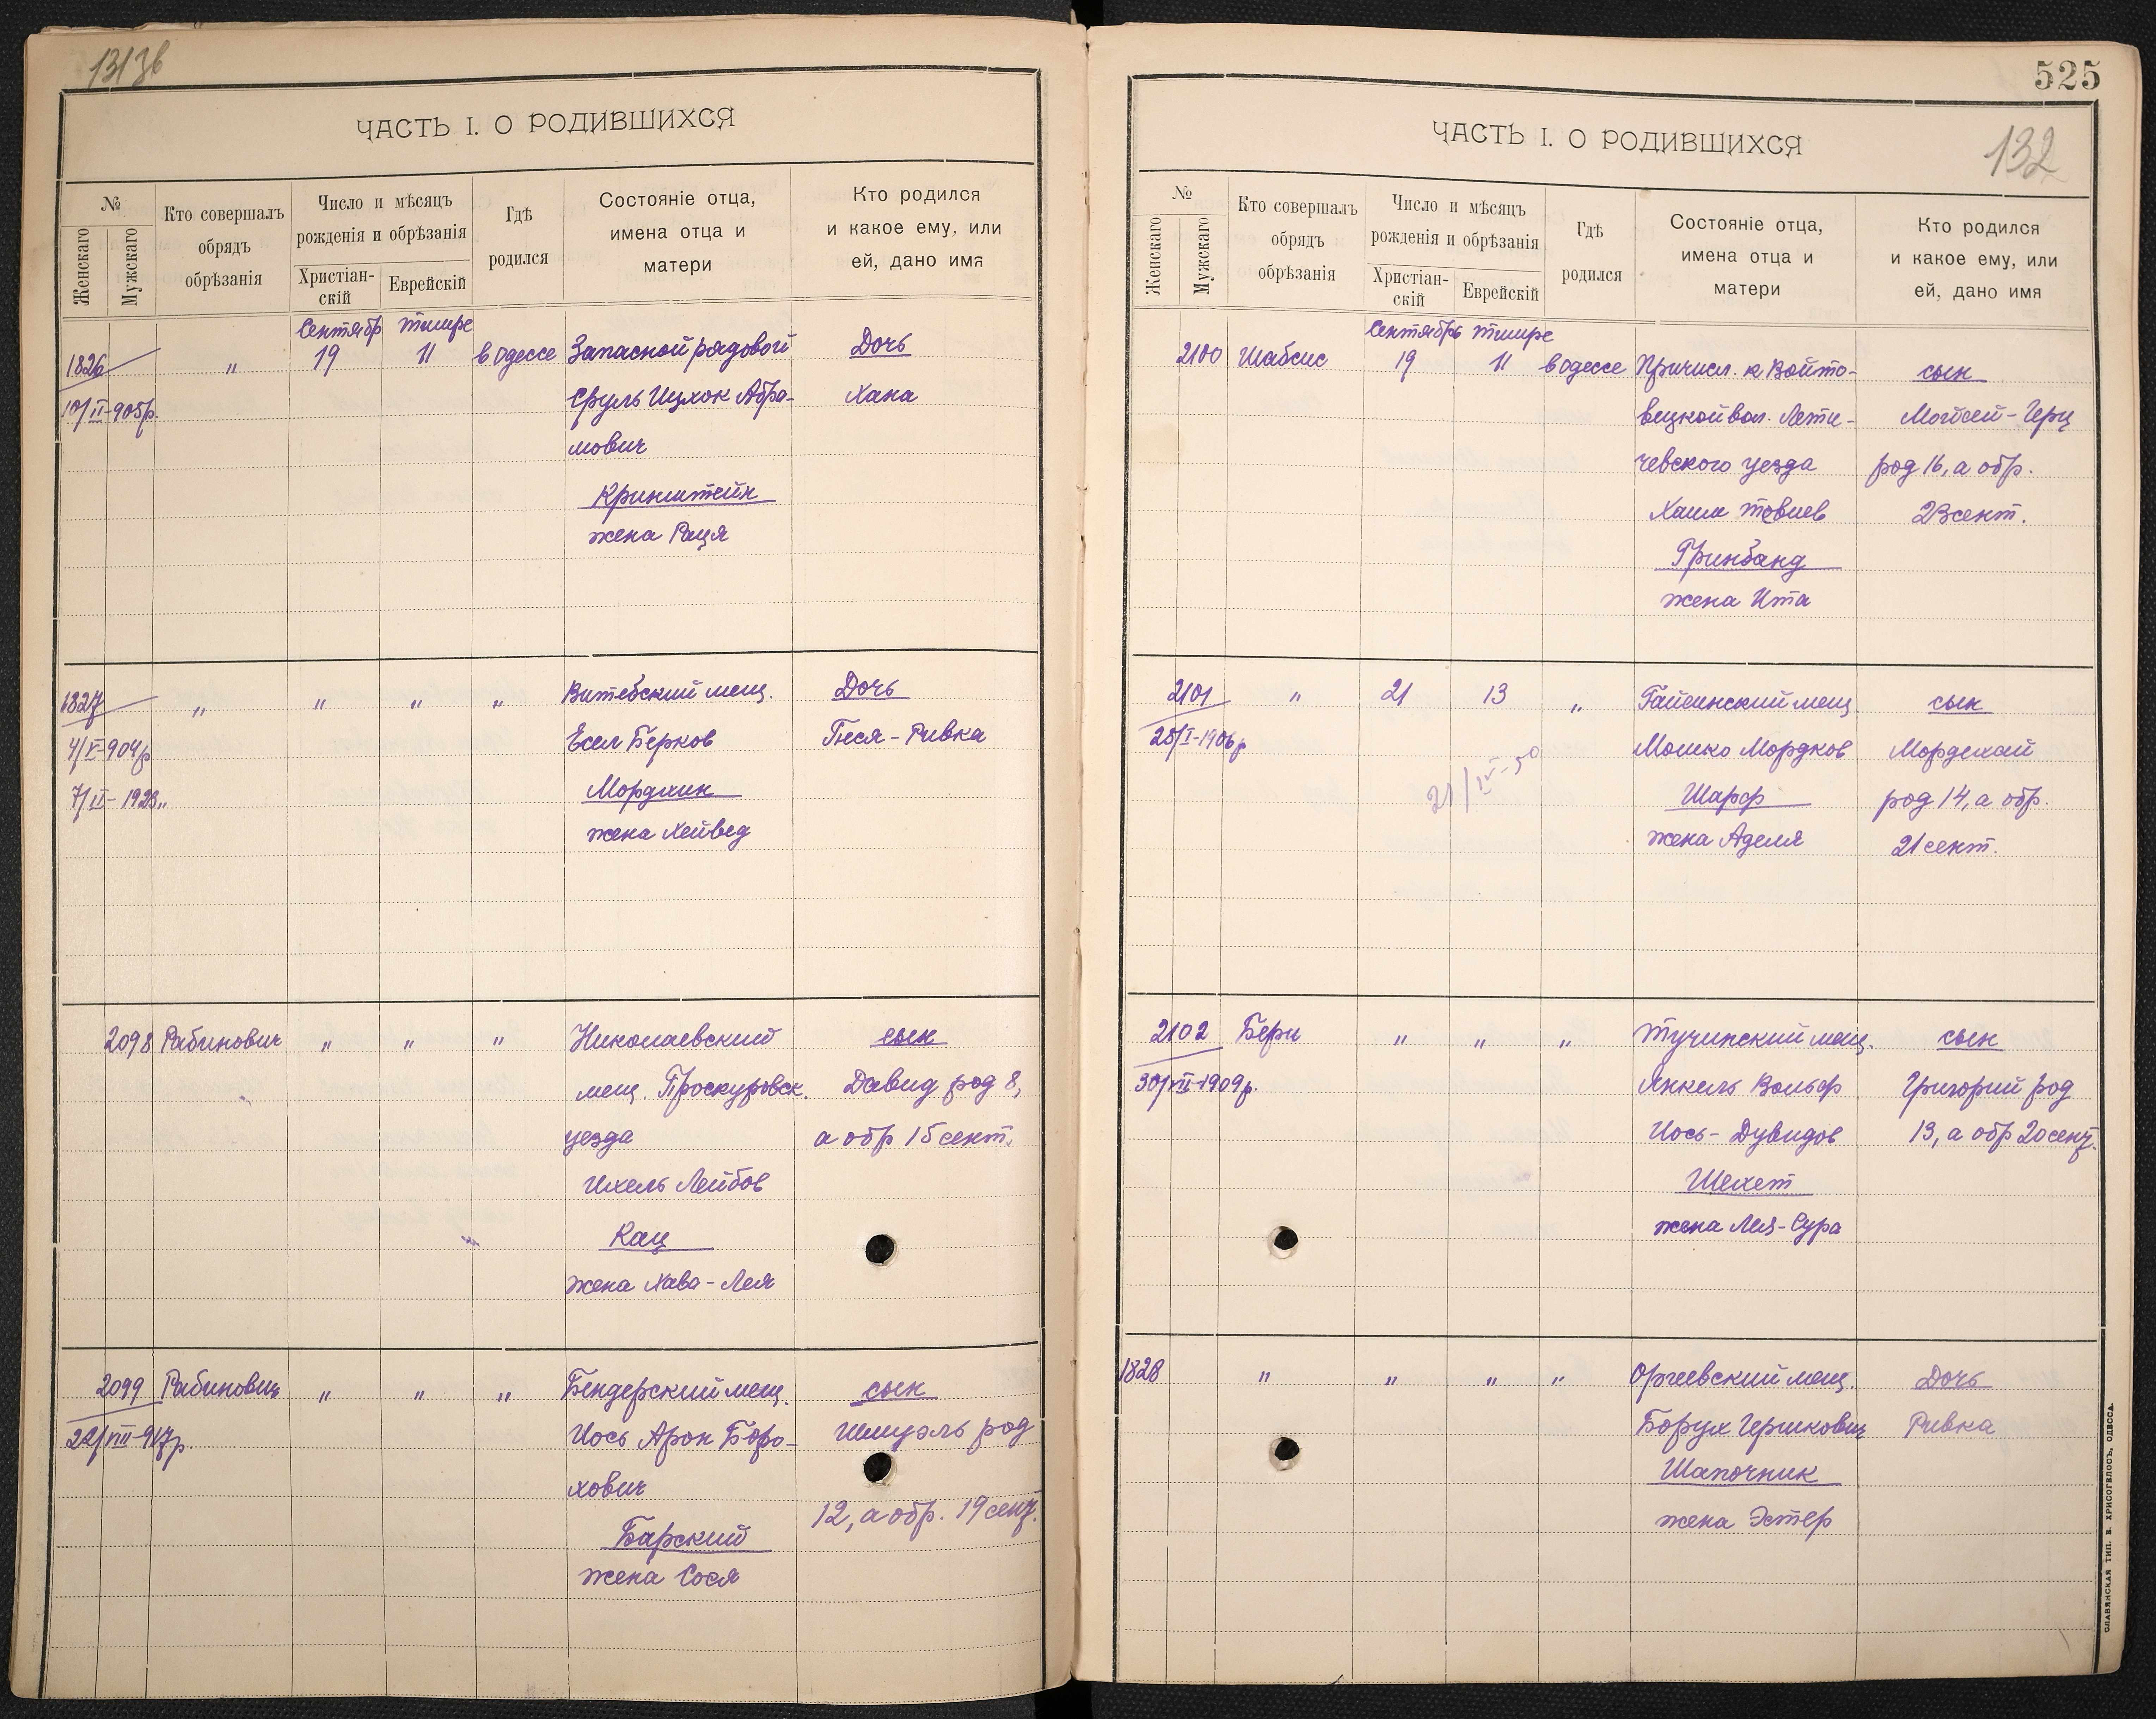 13136
ЧАСТЬ I. О РОДИВШИХСЯ
№
Женскаго
Мужскаго
Кто совершалъ
обрядъ
обрѣзанія
Число и мѣсяцъ
рожденія и обрѣзанія
Христіан-
скій
Еврейскій
Гдѣ
родился
Состояніе отца,
имена отца и
матери
Кто родился
и какое ему, или
ей, дано имя
Сентябр Тишре
1826 " 19 11 в Одессе Запасной рядовой Дочь
10/II-905р. Сруль Ицхок Абра- Хана
мович
Кринштейн
жена Рация
1827 " " " " Витебский мещ. Дочь
4/V-904р Есел Берков Гнеся-Ривка
7/II-1923 " Мордхин
жена Хейвед
2098 Рабинович " " " Николаевский сын
мещ. Проскуровск. Давид род 8,
уезда а обр 15 сент.
Ихель Лейбов
Кац
жена Хава-Лея
2099 Рабинович " " " Бендерский мещ. сын
22/VIII-917р Иось Арон Боро- Шмуэль род
хович
12, а обр. 19 сент.
Барский
жена Сося
525
132
ЧАСТЬ I. О РОДИВШИХСЯ
№
Женскаго
Мужскаго
Кто совершалъ
обрядъ
обрѣзанія
Число и мѣсяцъ
рожденія и обрѣзанія
Христіан-
скій
Еврейскій
Гдѣ
родился
Состояніе отца,
имена отца и
матери
Кто родился
и какое ему, или
ей, дано имя
Сентябрь Тишре
2100 Шабсис 19 11 в Одессе Причисл. к Войто- сын
вецкой вол. Лети- Мойсей-Герц
чевского уезда род 16, а обр.
Хаим Товиев 23 сент.
Гринбанд
жена Ита
2101 " 21 13 " Гайсинский мещ. сын
25/I-1906р Мошко Мордков Мордехай
21/IV-50
Шарф род 14, а обр.
жена Аделя 21 сент.
2102 Берн " " " Тучинский мещ. сын
30/VII-1909р. Янкель Вольф Григорий род
Иось-Дувидов 13, а обр 20 сент.
Шехет
жена Лея-Сура
1828 " " " " Оргеевский мещ. Дочь
Борух Гершкович Ривка
Шапочник
жена Эстер
СЛАВЯНСКАЯ ТИП. В. ХРИСОГЕЛОСЪ, ОДЕССА.